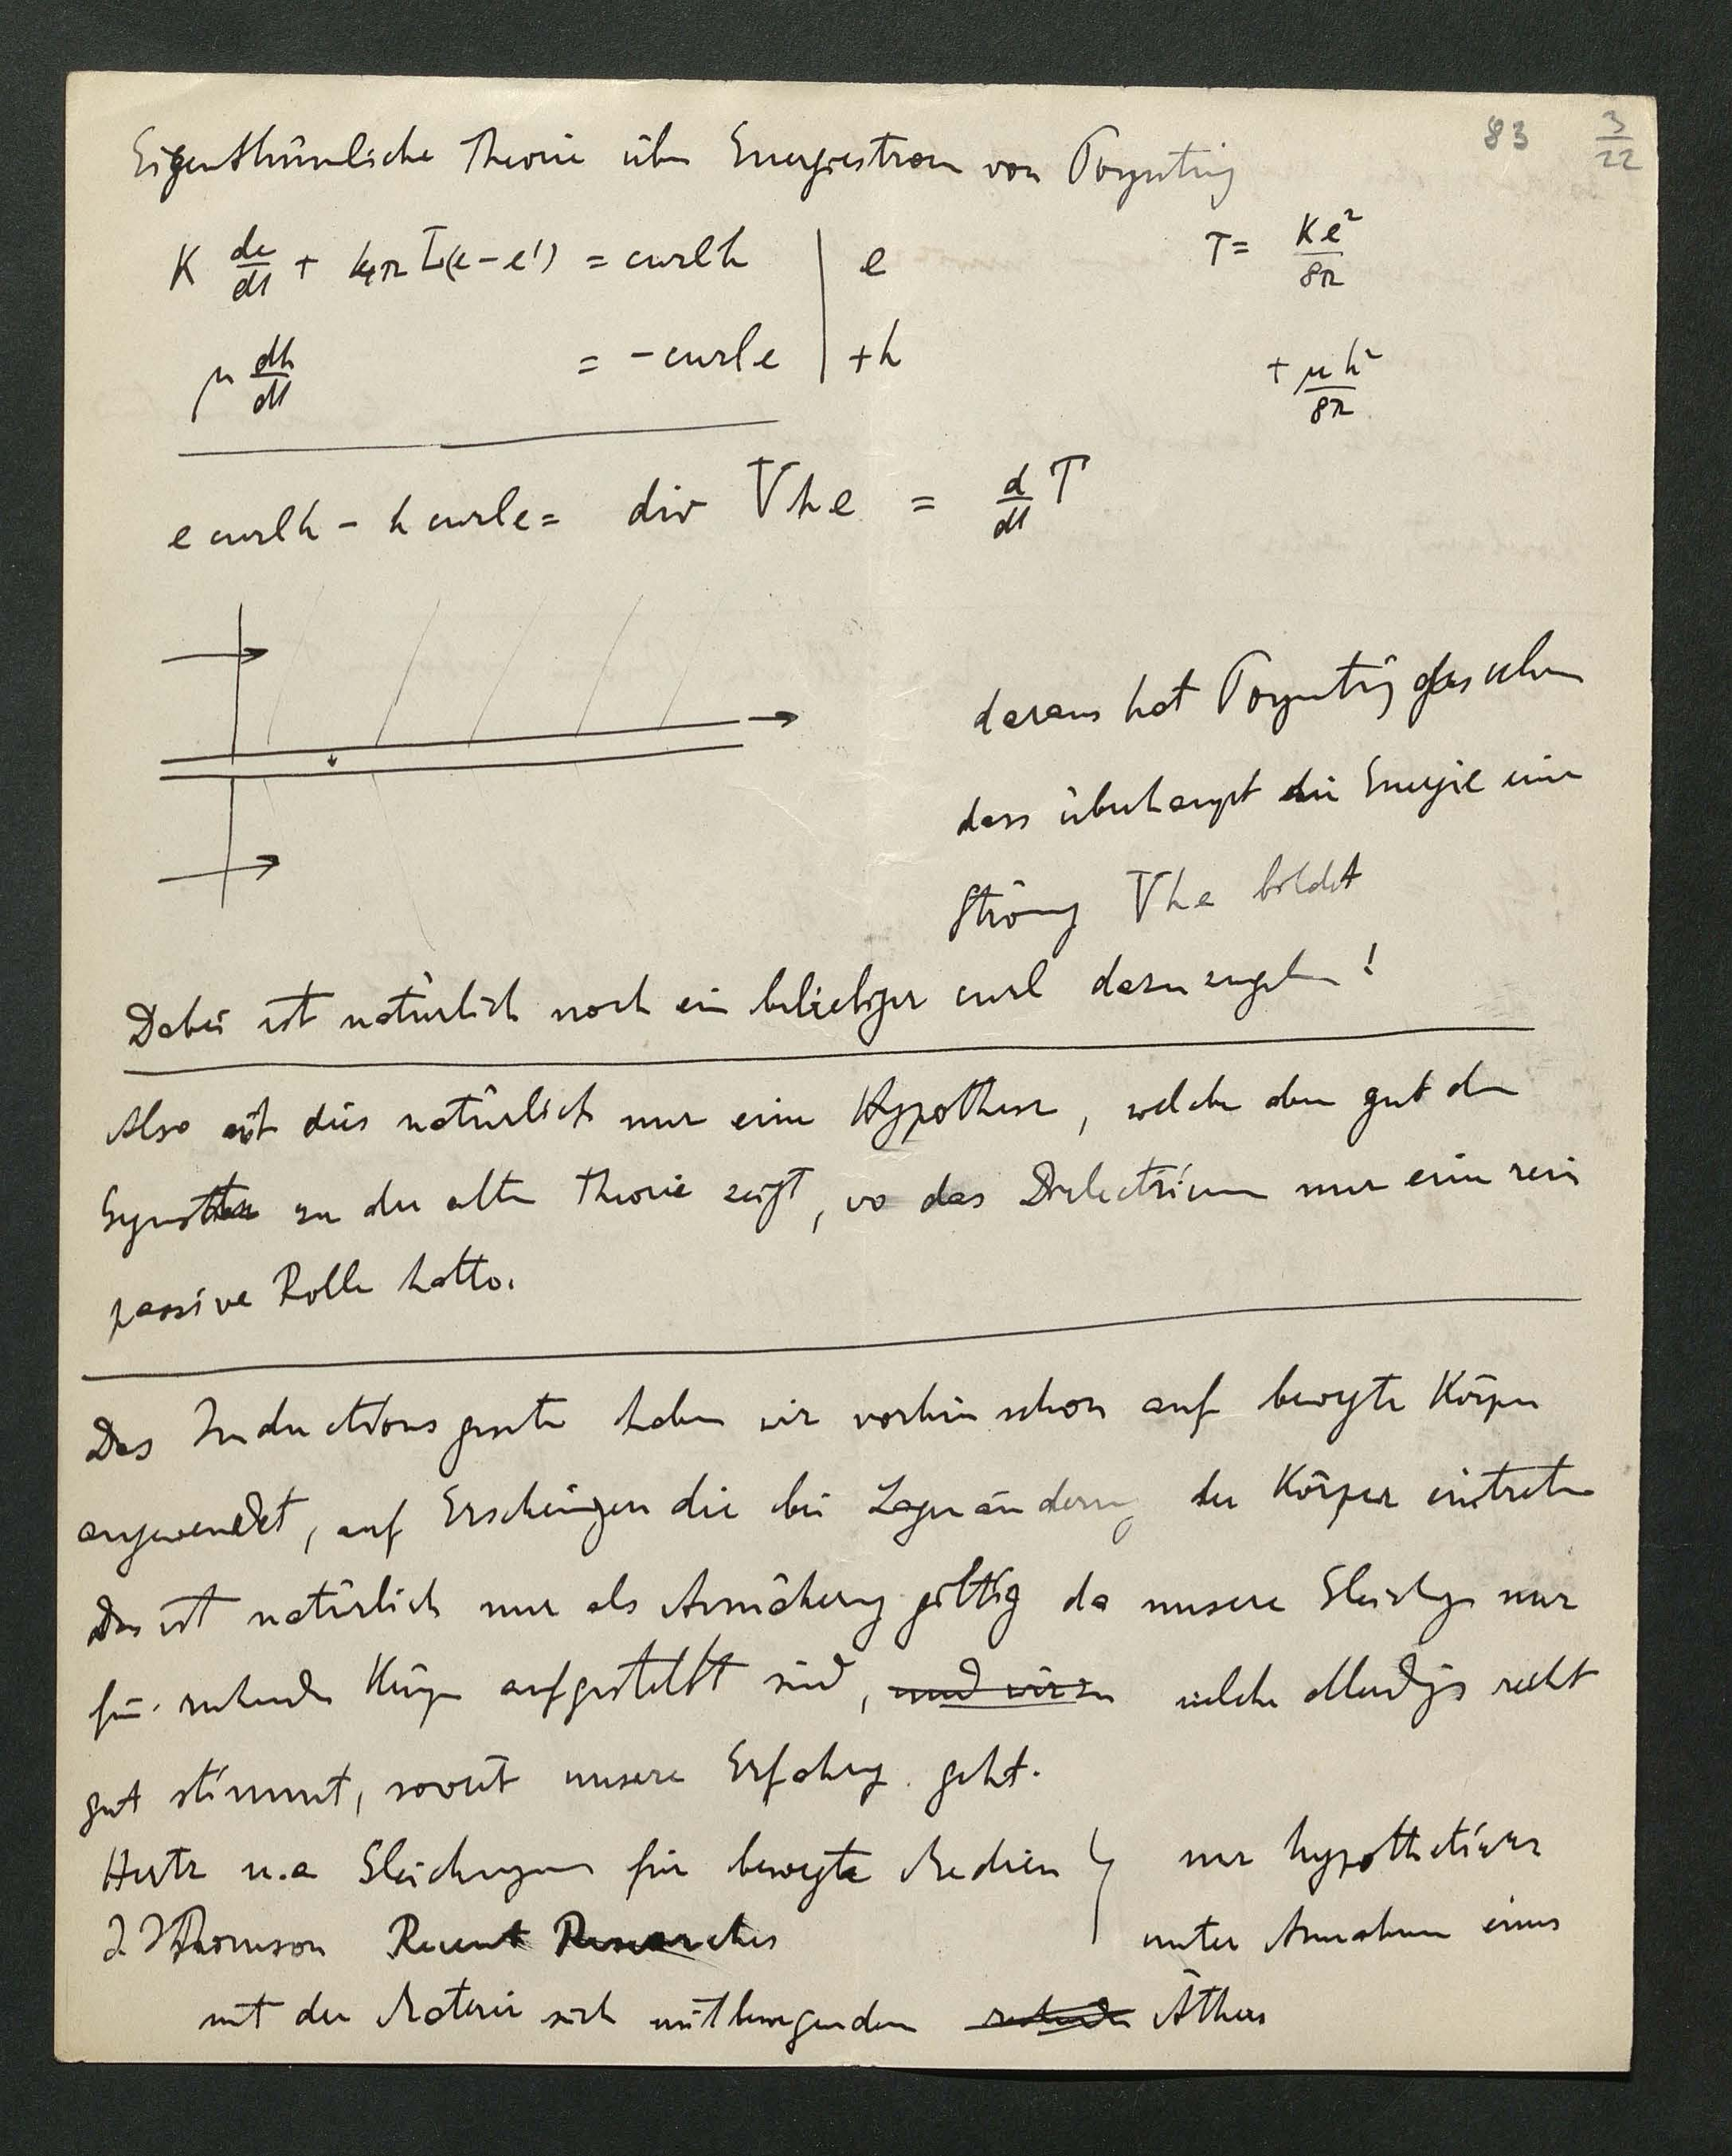 83 3/22
Eigenthümliche Theorie über Energiestrom von Poynting
K de/dt + 4π L(e-e') = curl h | e T = Ke²/8π
μ dh/dt = - curl e | + h + μh²/8π
e curl h - h curl e = div Vhe = d/dt T
daraus hat Poynting geschlossen
dass überhaupt die Energie eine
Strömg Vhe bildet
Dabei ist natürlich noch ein beliebiger curl dazuzugeben!
Also ist dies natürlich nur eine Hypothese, welche aber gut den
zu der alten Theorie zeigt, wo das Dielectricum nur eine rein
passive Rolle hatte.
Das Inductionsgesetz haben wir vorhin schon auf bewegte Körper
angewendet, auf Erscheingen die bei Lagenänderng der Körper eintreten
Das ist natürlich nur als Annäherng giltig da unsere Gleichgen nur
für ruhende Körper aufgestellt sind, und wir welche allerdings recht
gut stimmt, soweit unsere Erfahrg geht.
Hertz u.a Gleichungen für bewegte Medien } nur hypothetisch
J. J Thomson Recent Researches unter Annahme eines
mit der Materie sich mitbewegenden ruhenden Äthers